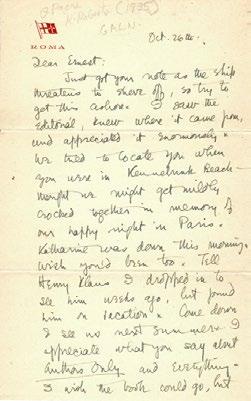 K. Roberts (1935)
ROMA
Oct. 26th.
Dear Ernest:
Just got your note as the ship
threatens to shove off, so try to
get this ashore. I saw the
editorial, knew where it came from,
and appreciated it enormously.
We tried to locate you when
you were in Kennebunk Beach—
thought we might get mildly
crocked together in memory of
our happy night in Paris.
Katharine was down this morning.
Wish you'd been too. Tell
Henry Klaus I dropped in to
see him weeks ago, but found
him on vacation. Come down
& see us next summer. I
appreciate what you say about
Authors Only and everything—
I wish the book could go, but